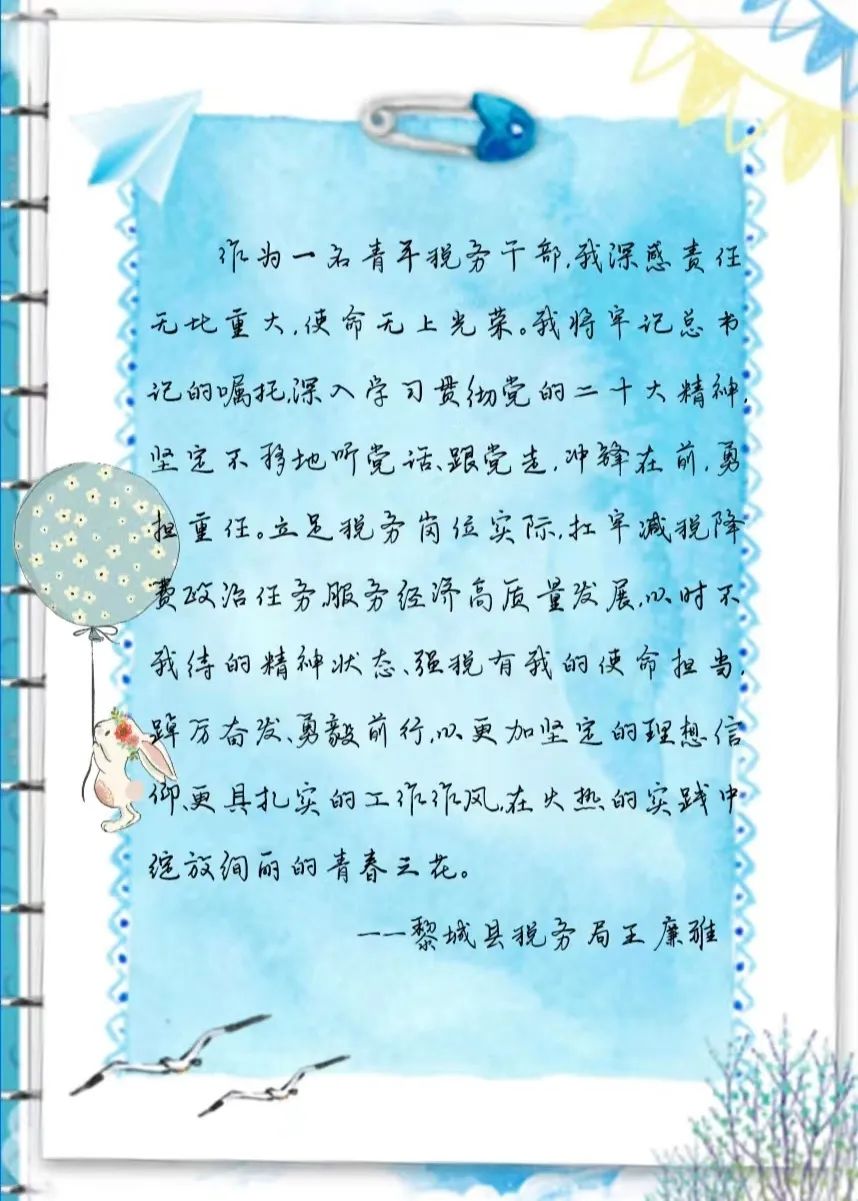 作为一名青年税务干部,我深感责任
无比重大,使命无上光荣。我将牢记总书
记的嘱托,深入学习贯彻党的二十大精神,
坚定不移地听党话、跟党走,冲锋在前,勇
担重任。立足税务岗位实际,扛牢减税降
费政治任务,服务经济高质量发展,以时不
我待的精神状态、强税有我的使命担当,
踔厉奋发、勇毅前行,以更加坚定的理想信
仰、更具扎实的工作作风,在火热的实践中
绽放绚丽的青春之花。
——黎城县税务局王廉雅